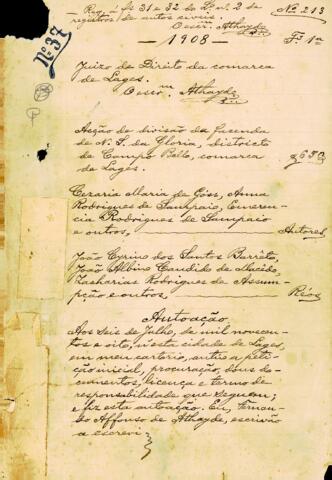 Reg. a fs 31 e 32 do L. nº 2 de
registros de autos civeis.
Escr.ᵐ Athayde
Nº 213
Nº 37
1908
Fˢ 1ª
Juizo de Direito da comarca
de Lages.
Escr.ᵐ Athayde
Acção de divisão da fazenda
de N. S. da Gloria, districto
de Campo Bello, comarca
de Lages.
Cezaria Maria de Góss, Anna
Rodrigues de Sampaio, Emeren-
cia Rodrigues de Sampaio
e outros, Autores
João Cyrino dos Santos Barrêto,
João Albino Candido de Macêdo,
Zacharias Rodrigues de Assum-
pção e outros, Réos
Autoação
Aos seis de Julho, de mil novecen-
tos e oito, n'esta cidade de Lages,
em meu cartorio, autúo a peti-
ção inicial, procuração, dous do-
cumentos, licença e termo de
responsabilidade que seguem;
e fiz esta autoação. Eu, Fernan-
do Affonso de Athayde, escrivão
a escrevi